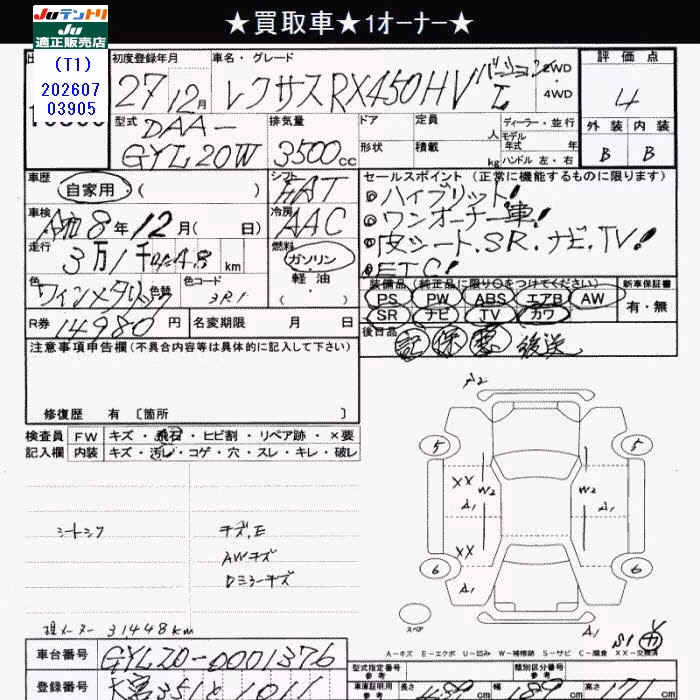 ★買取車★1オーナー★
JUテントリ
JU
適正販売店
(T1)
202607
03905
初度登録年月 車名・グレード 評価点
27 12月 レクサスRX450HV バージョンL 2WD 4WD 4
型式 排気量 ドア 定員 人 ディーラー・並行 外装 内装
DAA-GYL20W 3500cc 形状 積載 kg モデル年式 年 ハンドル 左・右 B B
車歴 自家用 ( ) シフト FAT セールスポイント (正常に機能するものに限ります)
ハイブリット!
ワンオーナー車!
皮シート.SR.ナビ.TV!
ETC!
車検 令和8年12月( 日) 冷房 AAC
走行 3万1千448km 燃料 ガソリン・軽油 ( )
色 ワインメタリック 色替 色コード 3R1
装備品 (純正品に限り○をつけてください) 新車保証書
PS PW ABS エアB AW 有・無
SR ナビ TV カワ
R券 14980円 名変期限 月 日
後日品 記 保 後送
注意事項申告欄(不具合内容等は具体的に記入して下さい)
修復歴 有 〔箇所 〕
検査員 FW キズ・飛石・ヒビ割・リペア跡・×要
記入欄 内装 キズ・汚レ・コゲ・穴・スレ・キレ・破レ
シートシワ チズ,E
AWキズ
Dミラーキズ
現メーター 31448km
A2
5 5
XX W2 W2
A1 A1
XX
6 6
A1
スペア
S1
A-キズ E-エクボ U-凹み W-補修跡 S-サビ C-腐食 XX-交換済
車台番号 GYL20-0001376
型式指定番号 参考 類別区分番号 参考
登録番号 大宮 351 1011
車庫証明用 参考 長さ cm 幅 cm 高さ 171 cm